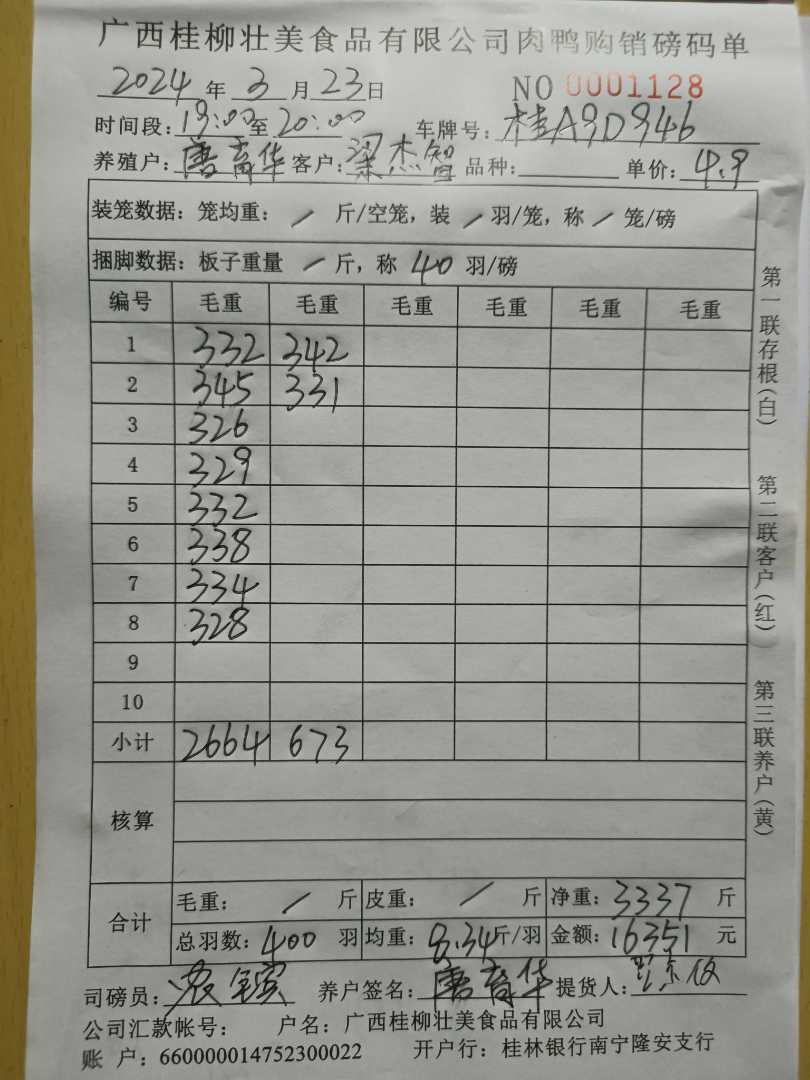 广西桂柳壮美食品有限公司肉鸭购销磅码单
2024年3月23日 NO 0001128
时间段:19:00至20:00 车牌号:桂A9D946
养殖户:唐育华 客户:梁杰智 品种: 单价:4.9
装笼数据:笼均重: / 斤/空笼,装 / 羽/笼,称 / 笼/磅
捆脚数据:板子重量 / 斤,称 40 羽/磅
编号 毛重 毛重 毛重 毛重 毛重 毛重
1 332 342
2 345 331
3 326
4 329
5 332
6 338
7 334
8 328
9
10
小计 2664 673
核算
合计 毛重: / 斤 皮重: / 斤 净重:3337 斤
总羽数:400 羽 均重:8.34斤/羽 金额:16351 元
司磅员: 养户签名:唐育华 提货人:
公司汇款帐号: 户名:广西桂柳壮美食品有限公司
账 户:660000014752300022 开户行:桂林银行南宁隆安支行
第一联存根(白)
第二联客户(红)
第三联养户(黄)